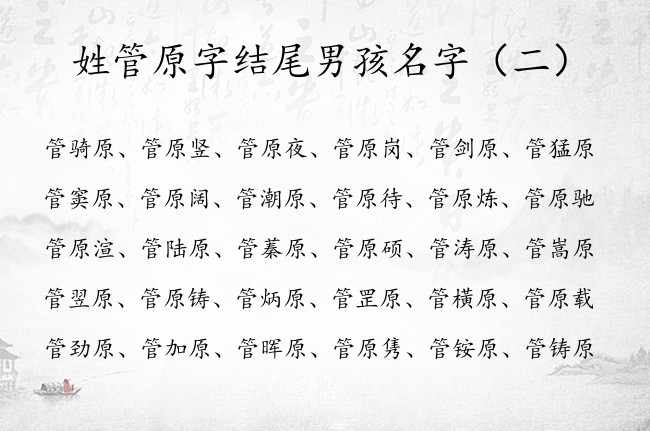 姓管原字结尾男孩名字（二）
管骑原、管原竖、管原夜、管原岗、管剑原、管猛原
管窦原、管原阔、管潮原、管原待、管原炼、管原驰
管原渲、管陆原、管蓁原、管原硕、管涛原、管嵩原
管翌原、管原铸、管炳原、管罡原、管横原、管原载
管劲原、管加原、管晖原、管原隽、管铵原、管铸原